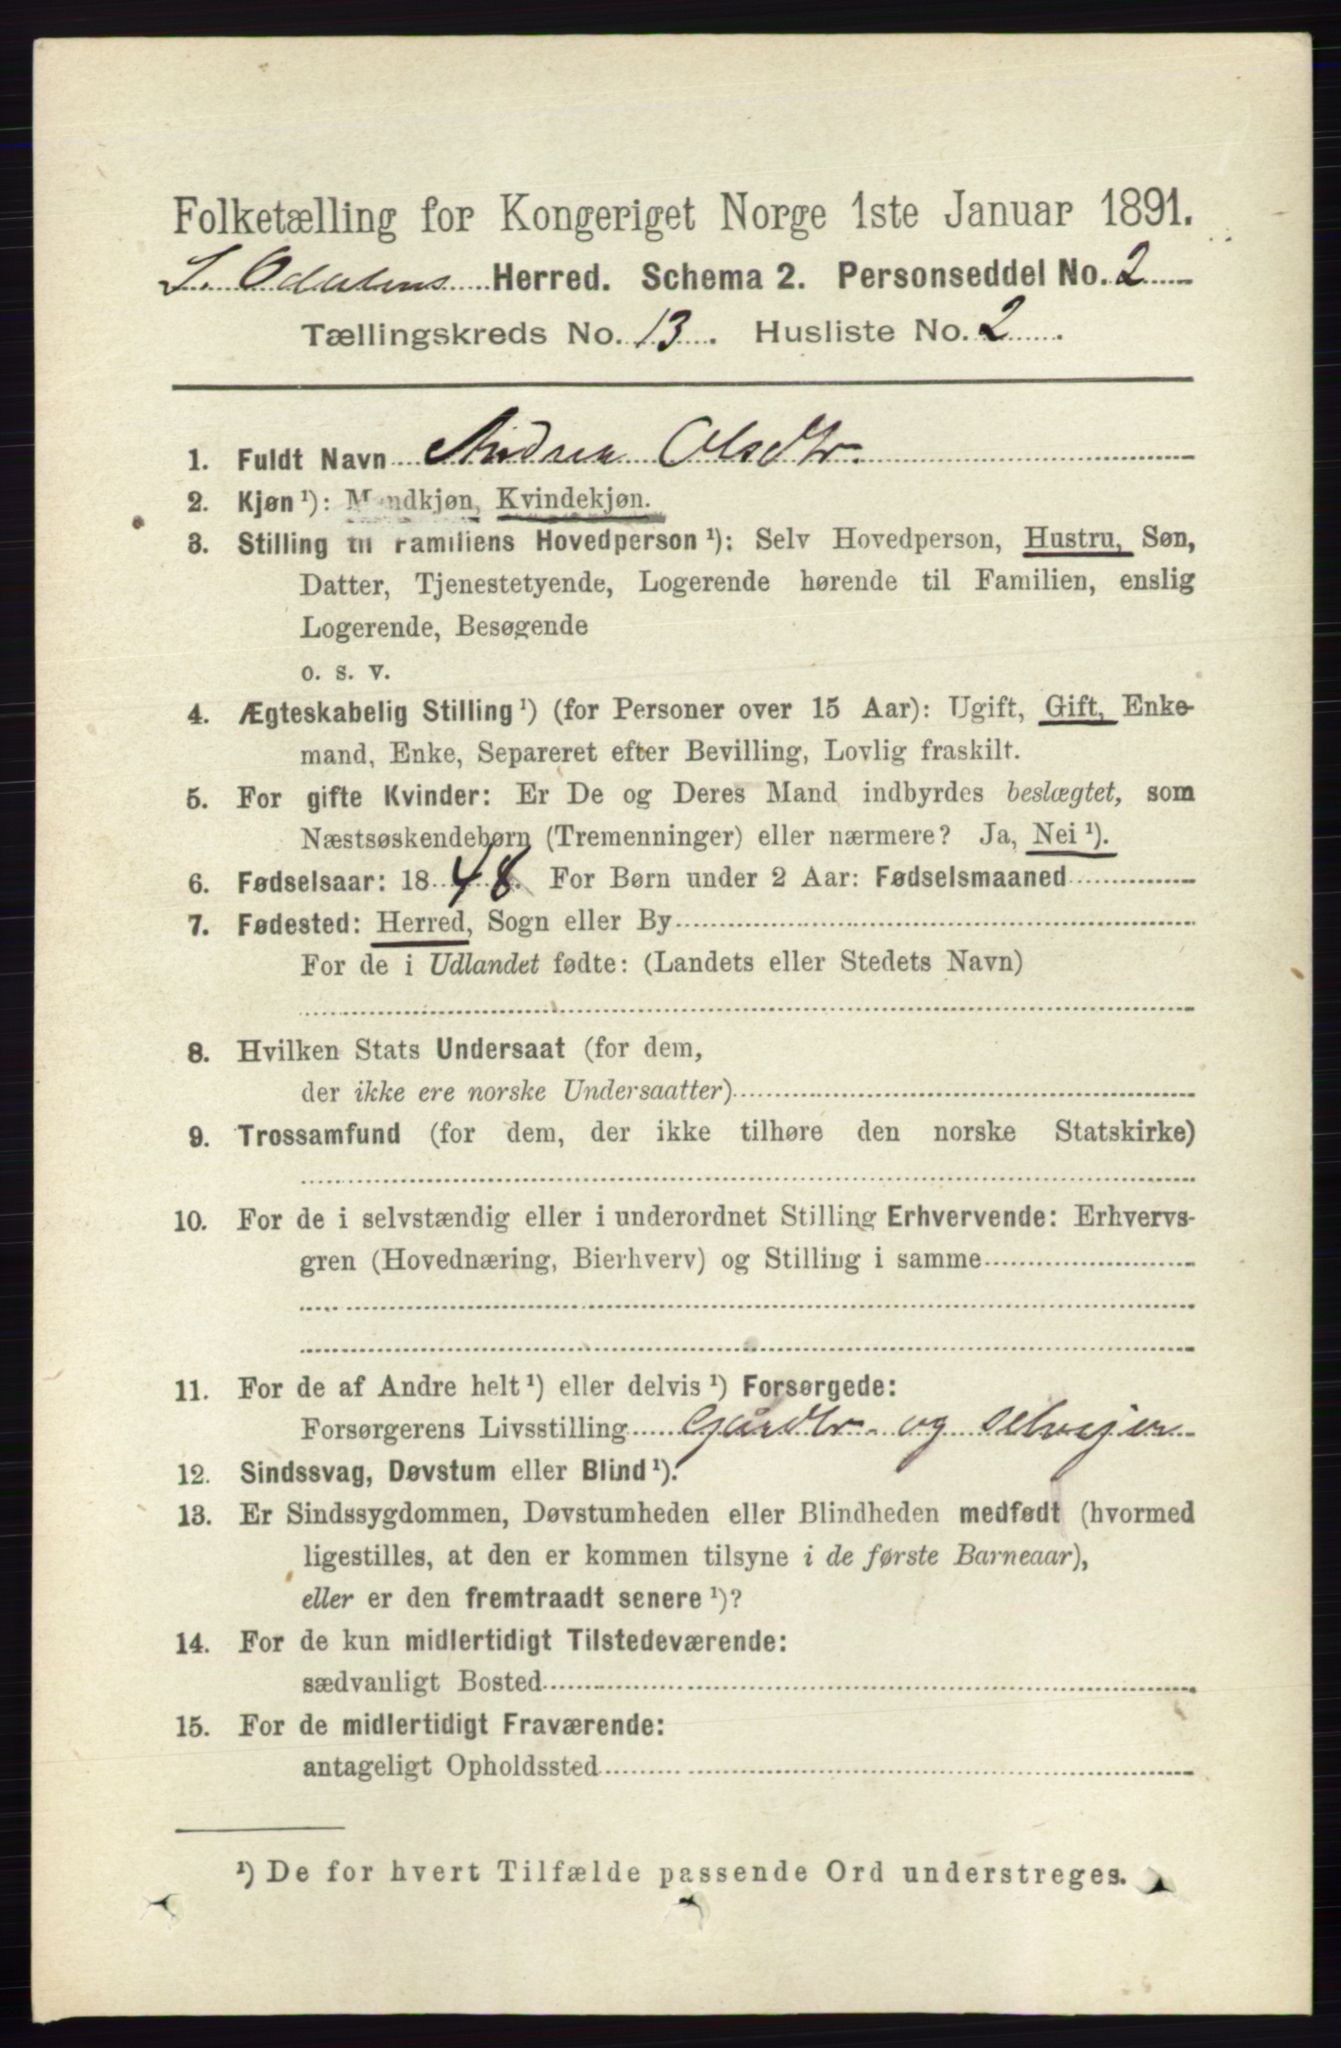 Folketælling for Kongeriget Norge 1ste Januar 1891.
S. Odalens Herred. Schema 2. Personseddel No. 2
Tællingskreds No. 13. Husliste No. 2.
1. Fuldt Navn Andrea Olsdtr.
2. Kjøn ¹): Mandkjøn, Kvindekjøn.
3. Stilling til Familiens Hovedperson ¹): Selv Hovedperson, Hustru, Søn,
Datter, Tjenestetyende, Logerende hørende til Familien, enslig
Logerende, Besøgende
o. s. v.
4. Ægteskabelig Stilling ¹) (for Personer over 15 Aar): Ugift, Gift, Enke-
mand, Enke, Separeret efter Bevilling, Lovlig fraskilt.
5. For gifte Kvinder: Er De og Deres Mand indbyrdes beslægtet, som
Næstsøskendebørn (Tremenninger) eller nærmere? Ja, Nei ¹).
6. Fødselsaar: 1848. For Børn under 2 Aar: Fødselsmaaned
7. Fødested: Herred, Sogn eller By
For de i Udlandet fødte: (Landets eller Stedets Navn)
8. Hvilken Stats Undersaat (for dem,
der ikke ere norske Undersaatter)
9. Trossamfund (for dem, der ikke tilhøre den norske Statskirke)
10. For de i selvstændig eller i underordnet Stilling Erhvervende: Erhvervs-
gren (Hovednæring, Bierhverv) og Stilling i samme
11. For de af Andre helt ¹) eller delvis ¹) Forsørgede:
Forsørgerens Livsstilling Gårdbr. og selveier
12. Sindssvag, Døvstum eller Blind ¹).
13. Er Sindssygdommen, Døvstumheden eller Blindheden medfødt (hvormed
ligestilles, at den er kommen tilsyne i de første Barneaar),
eller er den fremtraadt senere ¹)?
14. For de kun midlertidigt Tilstedeværende:
sædvanligt Bosted
15. For de midlertidigt Fraværende:
antageligt Opholdssted
¹) De for hvert Tilfælde passende Ord understreges.